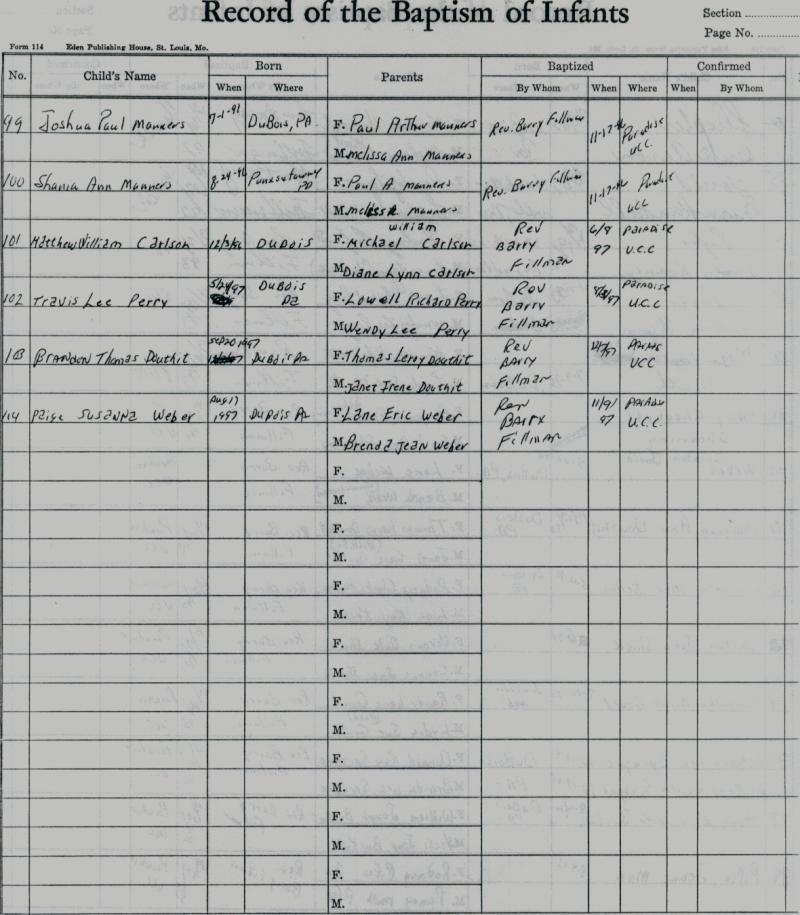 Record of the Baptism of Infants
Section
Page No.
Form 114 Eden Publishing House, St. Louis, Mo.
No. Child's Name Born Parents Baptized Confirmed
When Where By Whom When Where When By Whom
99 Joshua Paul Manners 7-1-91 DuBois, PA. F. Paul Arthur Manners Rev. Barry Fillman 11-17-96 Paradise UCC.
M. Melissa Ann Manners
100 Shania Ann Manners 8-24-96 Punxsutawney PA F. Paul A. Manners Rev. Barry Fillman 11-17-96 Paradise UCC
M. Melissa Manners
101 Matthew William Carlson DuBois F. Michael William Carlson Rev 6/8 Paradise
Barry 97 U.C.C
M Diane Lynn Carlson Fillman
102 Travis Lee Perry 5/24/97 DuBois Pa F. Lowell Richard Perry Rev Paradise
Barry 97 U.C.C.
M Wendy Lee Perry Fillman
103 Brandon Thomas Douthit Sep 20 1997 DuBois Pa F. Thomas Leroy Douthit Rev 12/7/97 Parads
Barry UCC
M. Janet Irene Douthit Fillman
Paige Susanna Weber Aug 17 1997 DuBois Pa F. Lane Eric Weber Rev 11/9/ Paradise
Barry 97 U.C.C.
M. Brenda Jean Weber Fillman
F.
M.
F.
M.
F.
M.
F.
M.
F.
M.
F.
M.
F.
M.
F.
M.